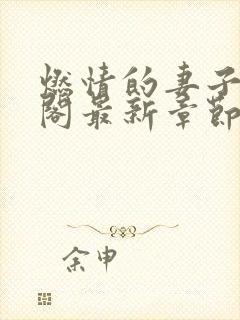 燃情的妻子
阁最新章节
余申